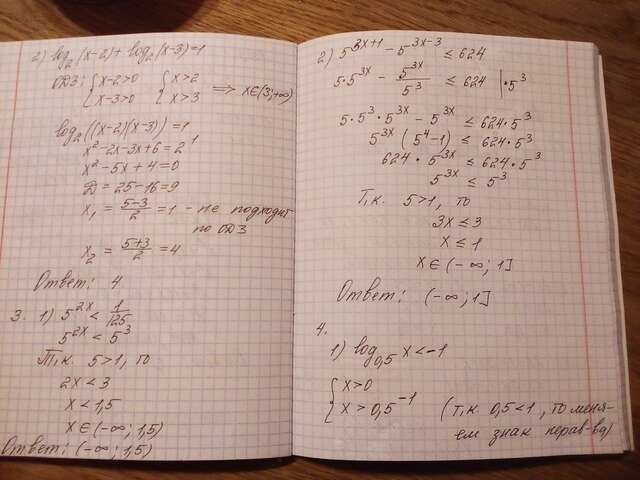 2) log₂(x-2) + log₂(x-3) = 1
ОДЗ: { x-2>0 { x>2 ⟹ x∈(3;+∞)
{ x-3>0 { x>3
log₂((x-2)(x-3)) = 1
x² - 2x - 3x + 6 = 2¹
x² - 5x + 4 = 0
D = 25 - 16 = 9
x₁ = (5-3)/2 = 1 - не подходит
по ОДЗ
x₂ = (5+3)/2 = 4
Ответ: 4
3. 1) 5^(2x) < 1/125
5^(2x) < 5^3
Т.к. 5>1, то
2x < 3
x < 1,5
x∈(-∞; 1,5)
Ответ: (-∞; 1,5)
2) 5^(3x+1) - 5^(3x-3) ≤ 624
5·5^(3x) - 5^(3x)/5^3 ≤ 624 |·5^3
5·5^3·5^(3x) - 5^(3x) ≤ 624·5^3
5^(3x) (5^4 - 1) ≤ 624·5^3
624·5^(3x) ≤ 624·5^3
5^(3x) ≤ 5^3
Т.к. 5>1, то
3x ≤ 3
x ≤ 1
x∈(-∞; 1]
Ответ: (-∞; 1]
4.
1) log₀,₅ x < -1
{ x>0
{ x > 0,5^(-1) (т.к 0,5<1, то меня-
ем знак нерав-ва)